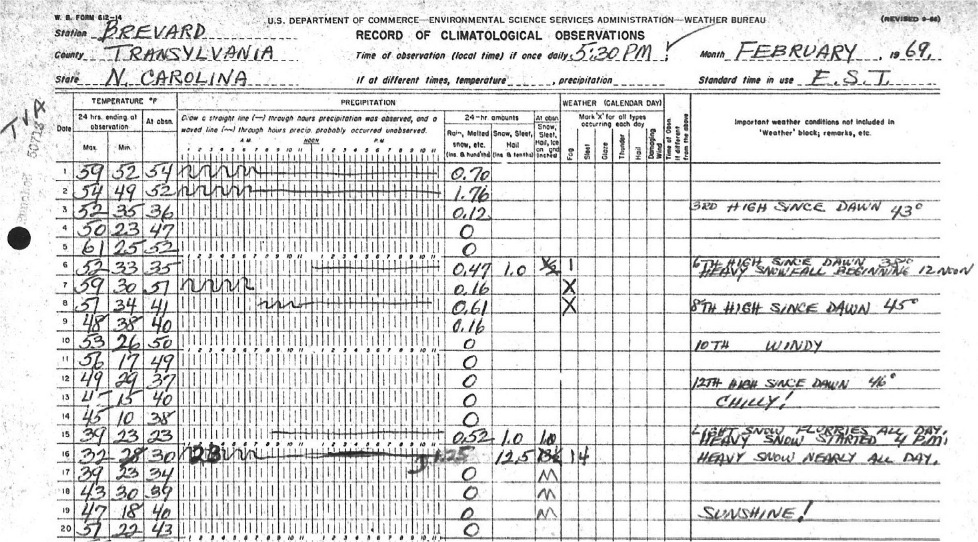 W. B. FORM 612-14 U.S. DEPARTMENT OF COMMERCE—ENVIRONMENTAL SCIENCE SERVICES ADMINISTRATION—WEATHER BUREAU (REVISED 9-66)
Station BREVARD RECORD OF CLIMATOLOGICAL OBSERVATIONS
County TRANSYLVANIA Time of observation (local time) if once daily 5:30 PM Month FEBRUARY, 1969,
State N. CAROLINA If at different times, temperature , precipitation Standard time in use E.S.T.
TVA
TEMPERATURE °F PRECIPITATION WEATHER (CALENDAR DAY)
Date 24 hrs. ending at observation Max. Min. At obsn. Draw a straight line (—) through hours precipitation was observed, and a waved line (~) through hours precip. probably occurred unobserved. 24-hr amounts Rain, Melted snow, etc. (ins. & hundths) Snow, Sleet, Hail (ins & tenths) At obsn. Snow, Sleet, Hail, Ice on gnd (inches) Mark 'X' for all types occurring each day Fog Sleet Glaze Thunder Hail Damaging Wind Time of Obsn. if different from the above Important weather conditions not included in 'Weather' block; remarks, etc.
A.M. NOON P.M.
1 2 3 4 5 6 7 8 9 10 11 1 2 3 4 5 6 7 8 9 10 11
1 59 52 54 0.70
2 54 49 52 1.76
3 52 35 36 0.12 3RD HIGH SINCE DAWN 43°
4 50 23 47 0
5 61 25 52 0
6 52 33 35 0.47 1.0 1/2 1 6TH HIGH SINCE DAWN
HEAVY SNOWFALL BEGINNING 12 NOON
7 59 30 51 0.16 X
8 51 34 41 0.61 X 8TH HIGH SINCE DAWN 45°
9 48 38 40 0.16
10 53 26 50 0 10TH WINDY
11 56 17 49 0
12 49 29 37 0 12TH HIGH SINCE DAWN 46°
13 15 40 0 CHILLY!
14 45 10 38 0
15 39 23 23 0.52 1.0 1.0 LIGHT SNOW FLURRIES ALL DAY.
HEAVY SNOW STARTED 4 P.M.
16 32 28 30 23 1.25 12.5 14 HEAVY SNOW NEARLY ALL DAY.
17 39 23 34 0 M
18 43 30 39 0 M
19 47 18 40 0 M SUNSHINE!
20 51 22 43 0